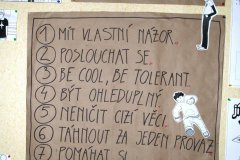 1 MÍT VLASTNÍ NÁZOR.
2 POSLOUCHAT SE.
3 BE COOL, BE TOLERANT.
4 BÝT OHLEDUPLNÝ
5 NENIČIT CIZÍ VĚCI.
6 TÁHNOUT ZA JEDEN PROVAZ
7 POMÁHAT SI